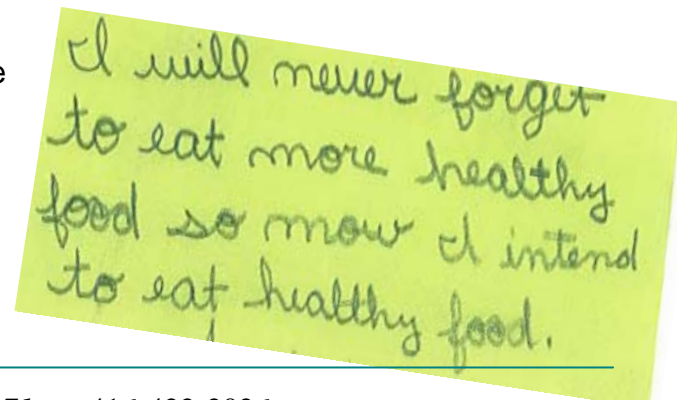 I will never forget
to eat more healthy
food so now I intend
to eat healthy food.